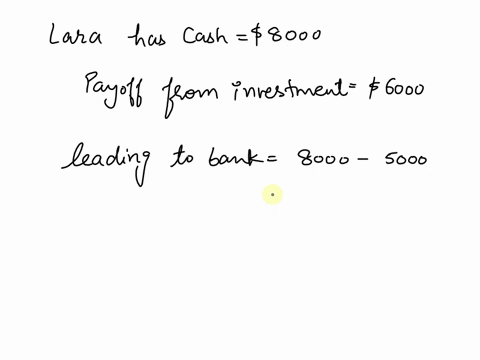 Lara has Cash = $8000
Payoff from investment = $6000
leading to bank = 8000 - 5000